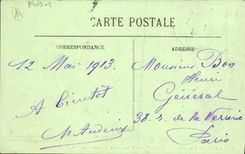 CARTE POSTALE
CORRESPONDANCE
ADRESSE
12 Mai 1913.
A bientot
Monsieur Bon
Henri
Général
38. r. de la Verrerie
Paris